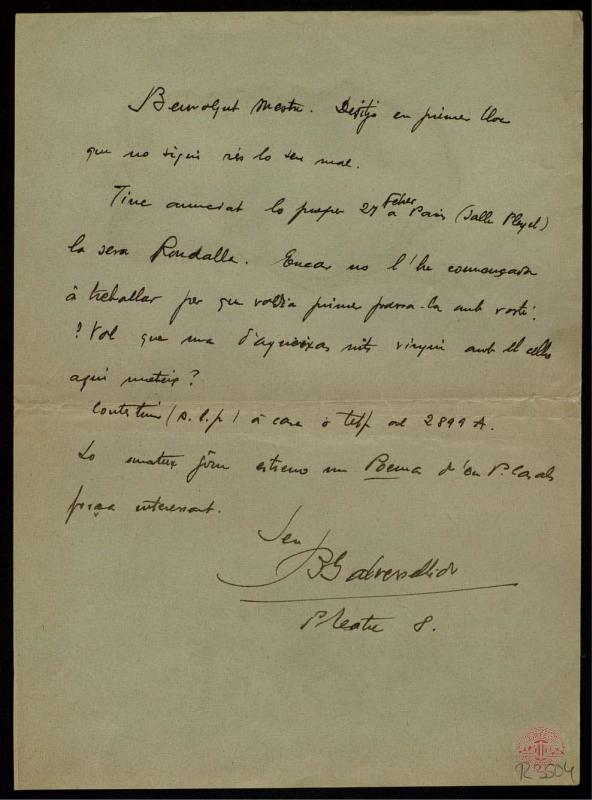 Benvolgut Mestre. Desitjo en primer lloc
que no sigui rés lo seu mal.
Tinc anunciat lo proper 27 Feber a Paris (Salle Pleyel)
la seva Rondalla. Encar no l'he començada
à treballar per que voldria primer passa-la amb vostè.
? Vol que una d'aqueixas nits vingui amb el cello
aqui mateix?
Contesti'm (s. l. p.) à casa ò telef al 2899 A.
Lo mateix jorn estreno un Poema d'en P. Casals
força interessant.
Seu
B Galvez
P. Teatre 8.
R 3504